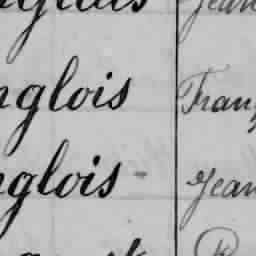 nglois Jean
nglois Franç
nglois Jean